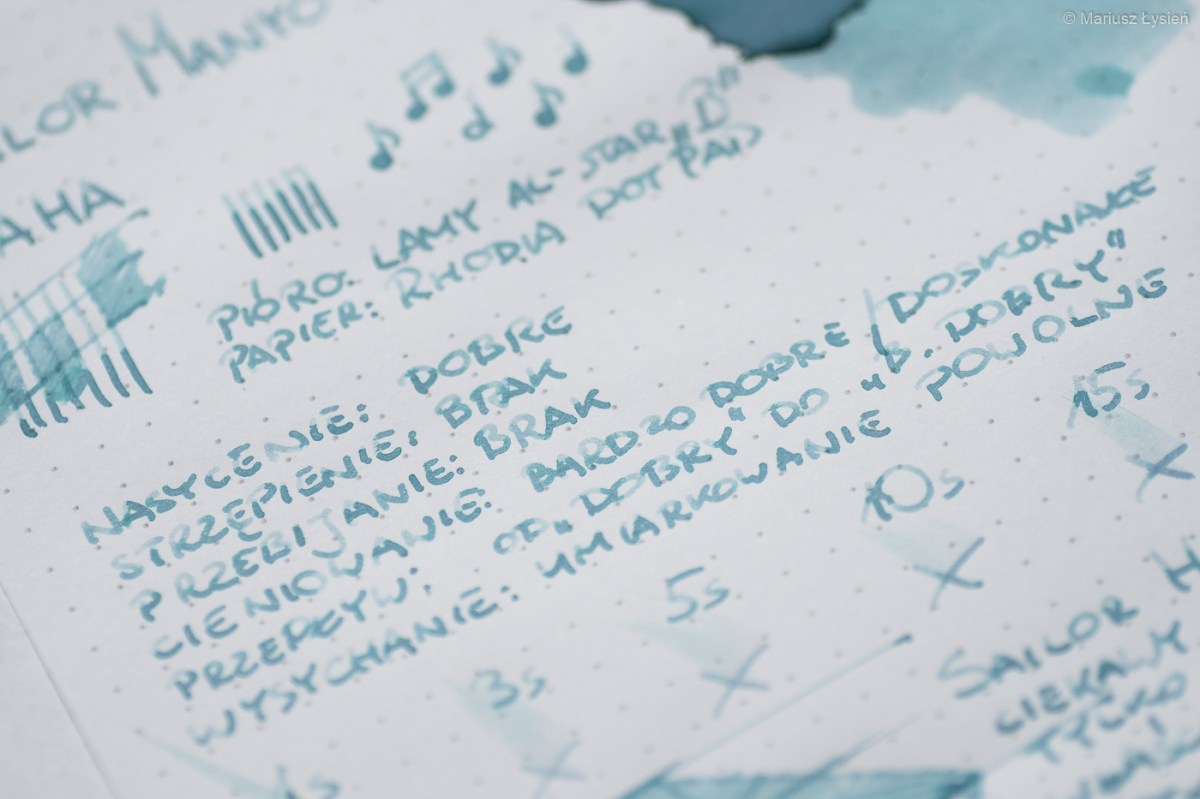 © Mariusz Łysień
ILOR MANYO
AHA
PIÓRO: LAMY AL-STAR „B"
PAPIER: RHODIA DOT PAD
NASYCENIE: DOBRE
STRZĘPIENIE: BRAK
PRZEBIJANIE: BRAK
CIENIOWANIE: BARDZO DOBRE / DOSKONAŁE
PRZEPŁYW: OD „DOBRY" DO „B. DOBRY"
WYSYCHANIE: UMIARKOWANIE POWOLNE
3s
5s
10s
15s
SAILOR
CIEKAWY
TYLKO
I